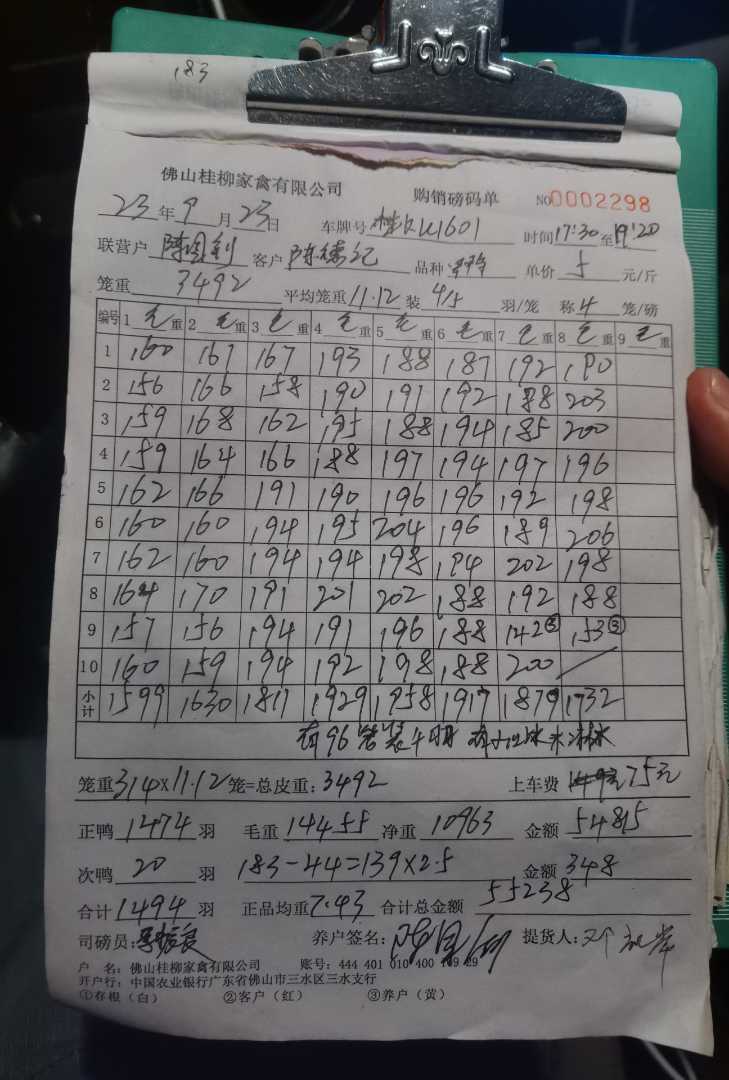 183
佛山桂柳家禽有限公司 购销磅码单 NO0002298
23年9月23日 车牌号 时间17:30至19:20
联营户 客户 品种 单价 5 元/斤
笼重 3492 平均笼重11.12装4/5羽/笼 称4笼/磅
编号 1毛重 2毛重 3毛重 4毛重 5毛重 6毛重 7毛重 8毛重 9毛重
1 160 167 167 193 188 187 192 190
2 156 166 158 190 191 192 188 203
3 159 168 162 195 188 194 185 200
4 159 164 166 188 197 194 197 196
5 162 166 191 190 196 196 192 198
6 160 160 194 195 204 196 189 206
7 162 160 194 194 198 194 202 198
8 164 170 191 201 202 188 192 188
9 157 156 194 191 196 188 142③ 153③
10 160 159 194 192 198 188 200
小计 1599 1630 1811 1929 1958 1917 1879 1732
有96笼装4
笼重314×11.12笼=总皮重:3492 上车费 75元
正鸭1474羽 毛重14455 净重10963 金额54815
次鸭20羽 183-44=139×2.5 金额348
合计1494羽 正品均重7.43 合计总金额55238
司磅员: 养户签名: 提货人:
户 名:佛山桂柳家禽有限公司 账号:444 401 010 400 109 29
开户行:中国农业银行广东省佛山市三水区三水支行
①存根(白) ②客户(红) ③养户(黄)